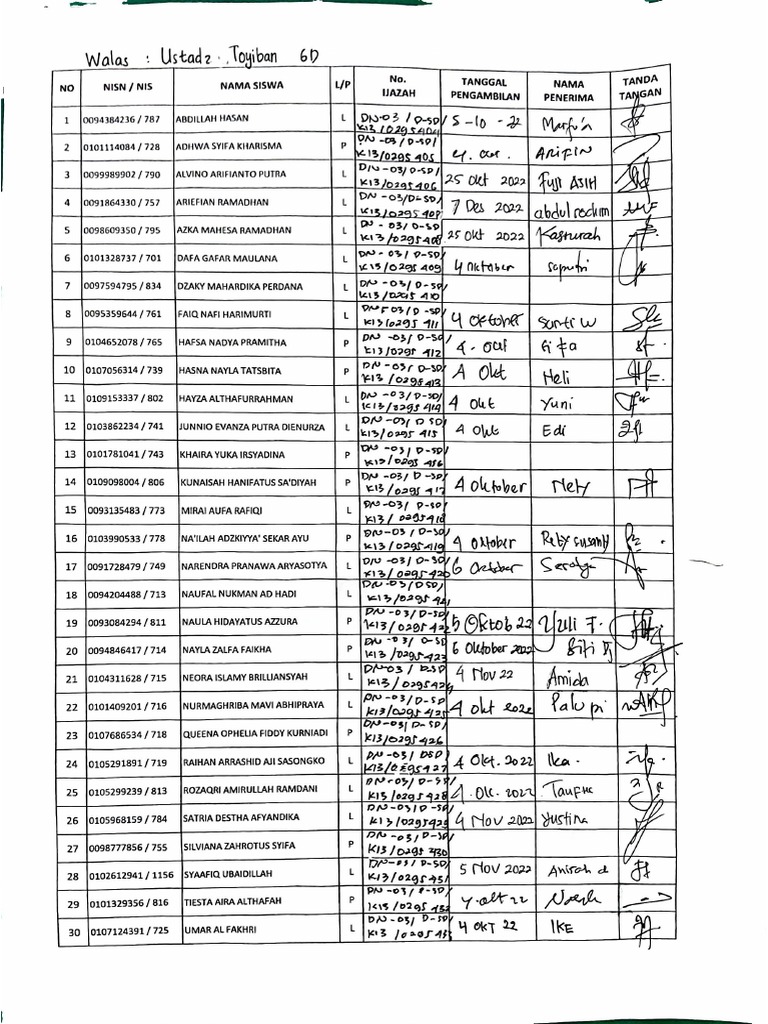 Walas : Ustadz . Toyiban 6D
NO NISN / NIS NAMA SISWA L/P No. IJAZAH TANGGAL PENGAMBILAN NAMA PENERIMA TANDA TANGAN
1 0094384236 / 787 ABDILLAH HASAN L DN-03 / D-SD/ K13 /0295404 5 -10 - 22
2 0101114084 / 728 ADHWA SYIFA KHARISMA P DN -03/ D-SD/ K13/0295 405 ARIFIN
3 0099989902 / 790 ALVINO ARIFIANTO PUTRA L DN -03/ D-SD/ K13/0295 406 25 Okt 2022 Fuji ASIH
4 0091864330 / 757 ARIEFIAN RAMADHAN L DN -03/ D-SD/ K13/0295 7 Des 2022 abdul rochim
5 0098609350 / 795 AZKA MAHESA RAMADHAN L DN -03/ D-SD/ K13/0295 408 25 Okt 2022 Kasturah
6 0101328737 / 701 DAFA GAFAR MAULANA L DN -03/ D-SD/ K13/0295 409 4 oktober saputri
7 0097594795 / 834 DZAKY MAHARDIKA PERDANA L DN -03/ D-SD/ K13/0295 410
8 0095359644 / 761 FAIQ NAFI HARIMURTI L DN-03 / D -SD/ K13/0295 411 4 oktober Santi W
9 0104652078 / 765 HAFSA NADYA PRAMITHA P DN -03/ D-SD/ K13/0295 412
10 0107056314 / 739 HASNA NAYLA TATSBITA P DN -03/ D-SD/ K13 /0295 413 4 Okt Heli
11 0109153337 / 802 HAYZA ALTHAFURRAHMAN L DN -03/ D-SD/ K13 /0295 414 4 Okt Yuni
12 0103862234 / 741 JUNNIO EVANZA PUTRA DIENURZA L DN -03/ D-SD/ K13 /0295 415 4 Okt Edi
13 0101781041 / 743 KHAIRA YUKA IRSYADINA P DN -03/ D-SD/ K13/0295 416
14 0109098004 / 806 KUNAISAH HANIFATUS SA'DIYAH P DN -03/ D-SD/ K13 /0295 417 4 Oktober Nety
15 0093135483 / 773 MIRAI AUFA RAFIQI L DN -03/ D-SD/ K13/ 0295 418
16 0103990533 / 778 NA'ILAH ADZKIYYA' SEKAR AYU P DN-03 / D-SD/ K13 /0295 419 4 Oktober Rety susanty
17 0091728479 / 749 NARENDRA PRANAWA ARYASOTYA L DN -03/ D-SD/ K13 /0295 420 6 Oktober
18 0094204488 / 713 NAUFAL NUKMAN AD HADI L DN-03 / DSD/ K13 /0295 421
19 0093084294 / 811 NAULA HIDAYATUS AZZURA P DN -03/ D-SD/ K13 /0295 422 5 Oktob 22 Yuli F.
20 0094846417 / 714 NAYLA ZALFA FAIKHA P DN -03/ D-SD/ K13/0295 423 6 Oktober 2022 Siti Dj
21 0104311628 / 715 NEORA ISLAMY BRILLIANSYAH L DN-03 / D-SD/ K13 /0295 424 4 Nov 22 Amida
22 0101409201 / 716 NURMAGHRIBA MAVI ABHIPRAYA L DN -03/ D-SD/ K13/0295 425 4 Okt 2022 Palupi
23 0107686534 / 718 QUEENA OPHELIA FIDDY KURNIADI P DN -03/ D-SD/ K13/0295 426
24 0105291891 / 719 RAIHAN ARRASHID AJI SASONGKO L DN -03/ DSD/ K13/0295 427 4 Okt. 2022 Ika .
25 0105299239 / 813 ROZAQRI AMIRULLAH RAMDANI L DN -03/ D-SD/ K13/0295 428 4 . Okt. 2022 Taufik
26 0105968159 / 784 SATRIA DESTHA AFYANDIKA L DN -03/D -SD/ K13/0295 429 4 Nov 2022 Yustina
27 0098777856 / 755 SILVIANA ZAHROTUS SYIFA P DN -03/ D-SD/ K13/0295 430
28 0102612941 / 1156 SYAAFIQ UBAIDILLAH L DN -03/ D-SD/ K13/0295 431 5 Nov 2022
29 0101329356 / 816 TIESTA AIRA ALTHAFAH P DN -03/ D-SD/ K13/0295 432 4 . okt 22
30 0107124391 / 725 UMAR AL FAKHRI L DN -03/ D-SD/ K13 /0295 433 4 OKT 22 IKE